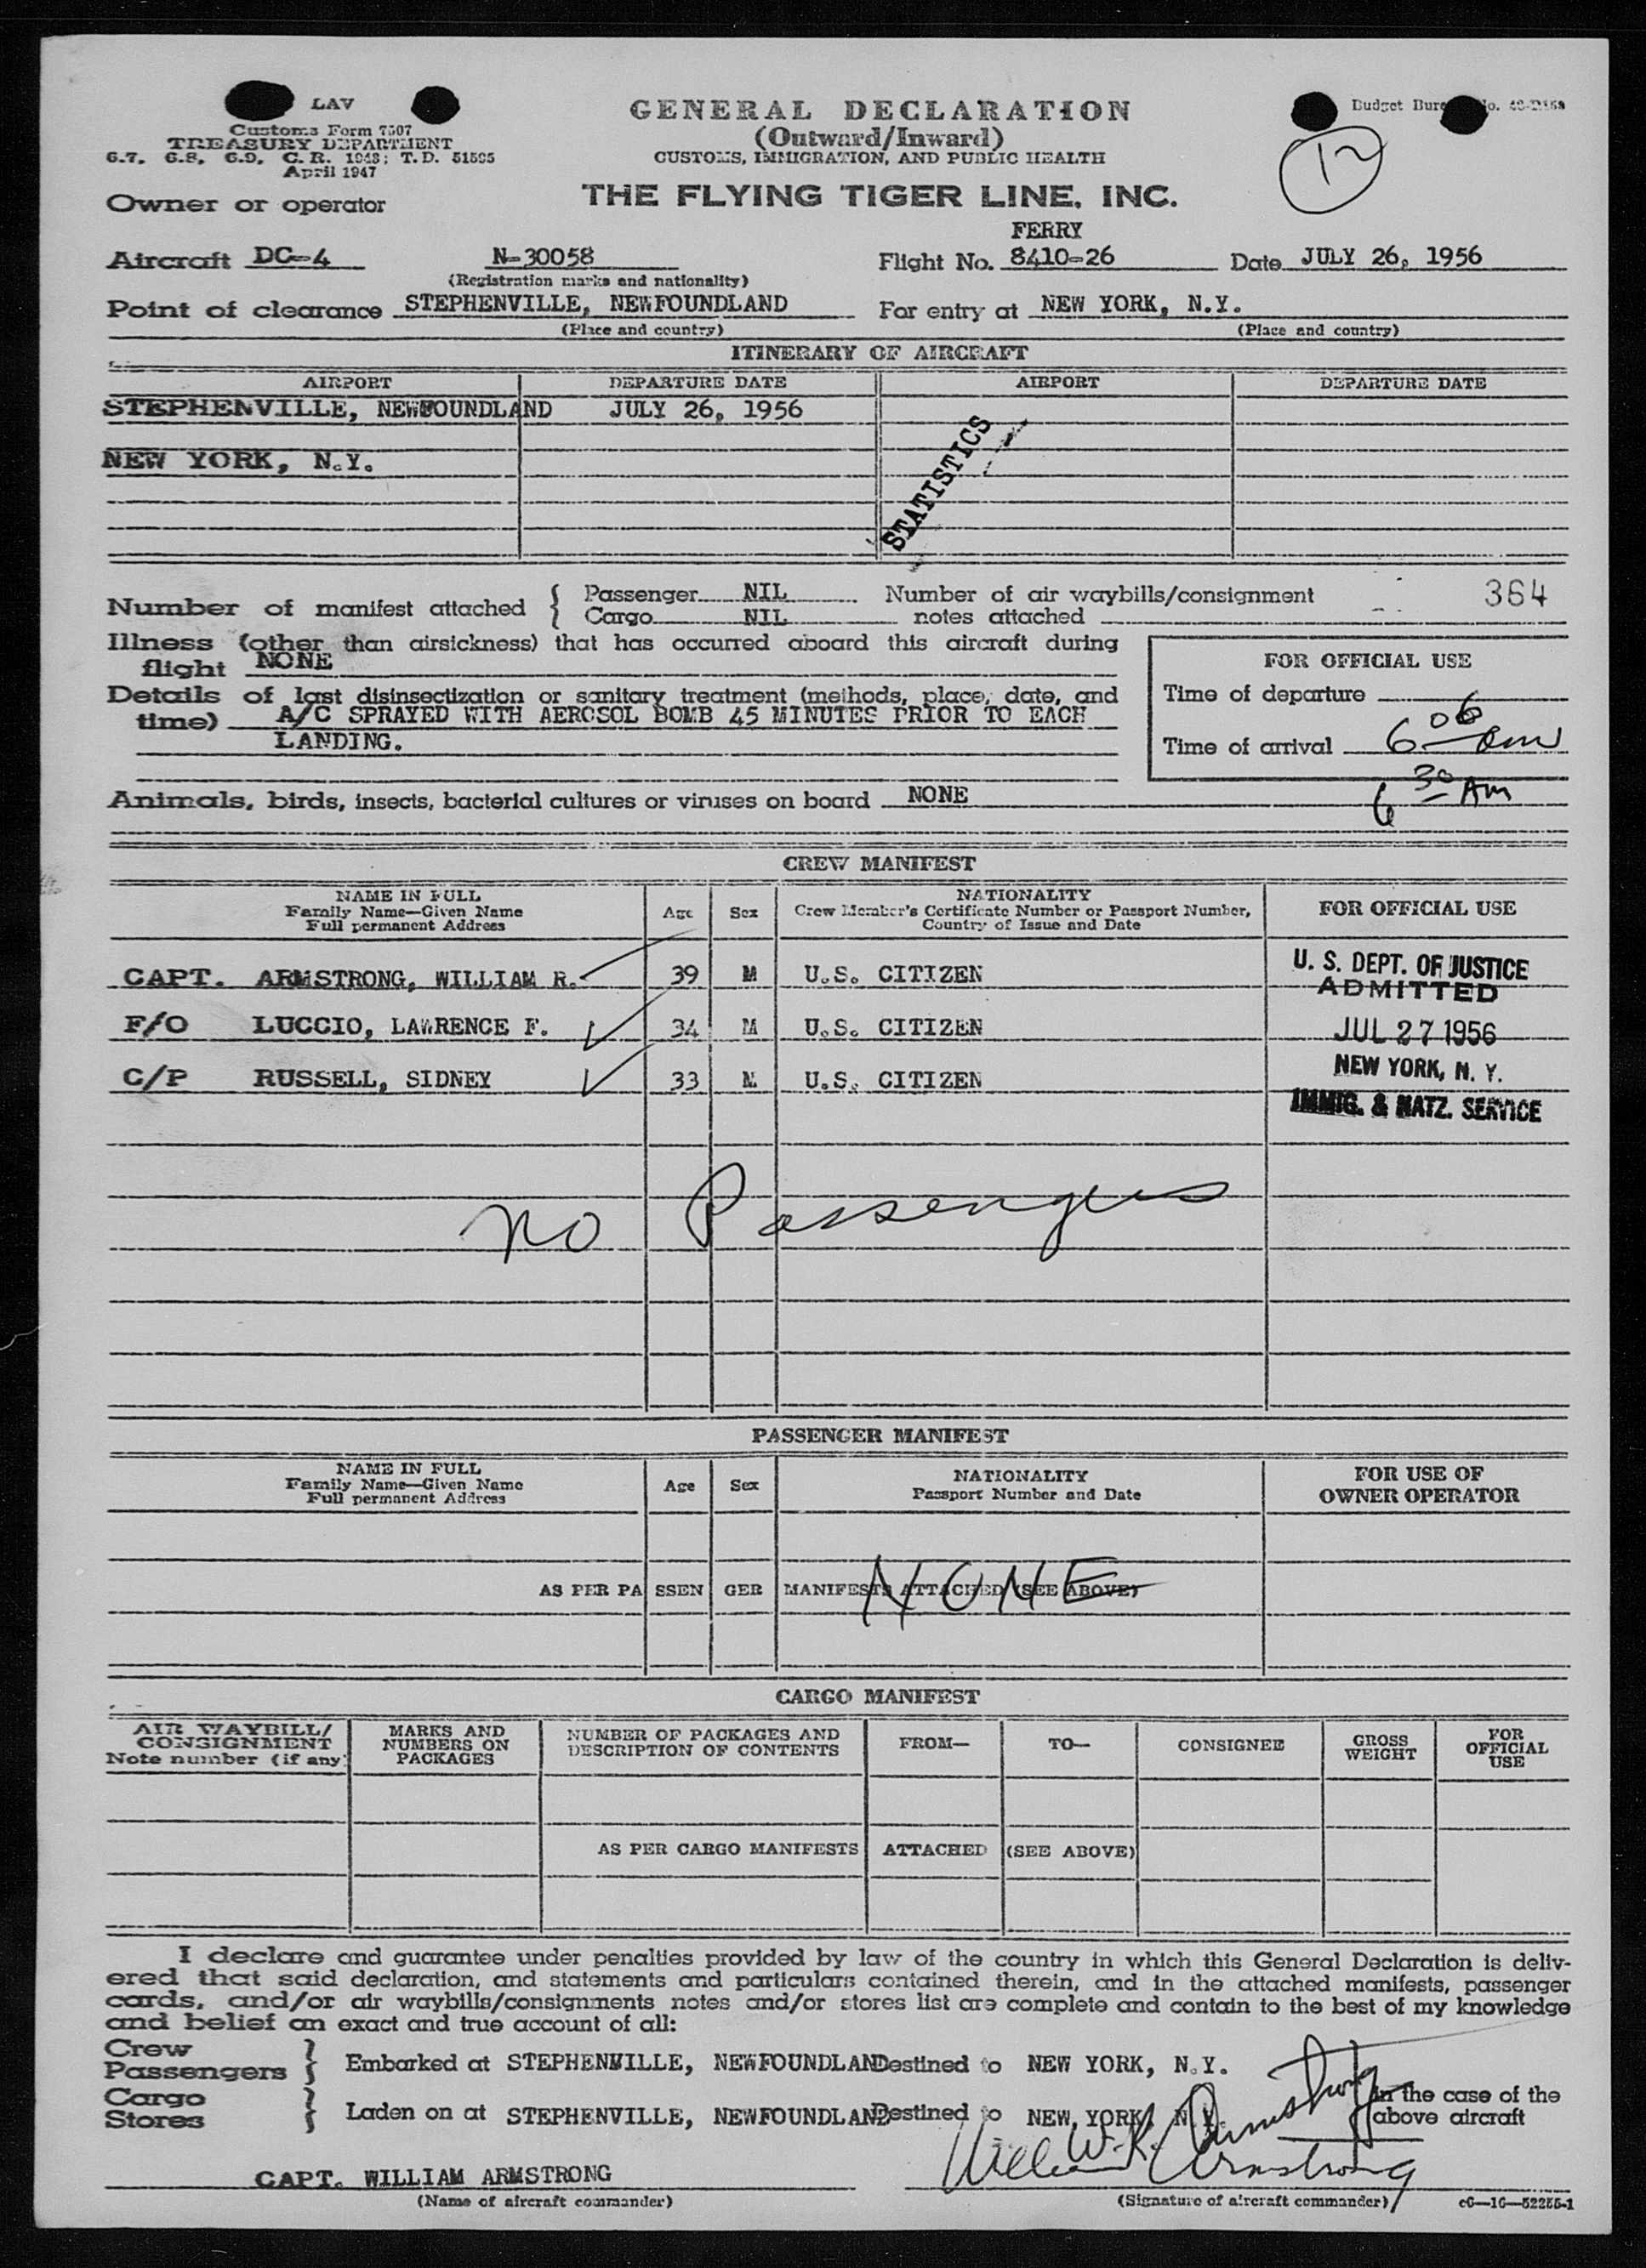 LAV
Customs Form 7507
TREASURY DEPARTMENT
6.7, 6.8, 6.9, C. R. 1943; T. D. 51595
April 1947
GENERAL DECLARATION
(Outward/Inward)
CUSTOMS, IMMIGRATION, AND PUBLIC HEALTH
Budget No.
12
Owner or operator THE FLYING TIGER LINE, INC.
FERRY
Aircraft DC-4 N-30058 Flight No. 8410-26 Date JULY 26, 1956
(Registration marks and nationality)
Point of clearance STEPHENVILLE, NEWFOUNDLAND For entry at NEW YORK, N.Y.
(Place and country) (Place and country)
ITINERARY OF AIRCRAFT
AIRPORT DEPARTURE DATE AIRPORT DEPARTURE DATE
STEPHENVILLE, NEWFOUNDLAND JULY 26, 1956
NEW YORK, N.Y.
STATISTICS
Number of manifest attached { Passenger NIL Number of air waybills/consignment 364
Cargo NIL notes attached
Illness (other than airsickness) that has occurred aboard this aircraft during
flight NONE
FOR OFFICIAL USE
Details of last disinsectization or sanitary treatment (methods, place, date, and
time) A/C SPRAYED WITH AEROSOL BOMB 45 MINUTES PRIOR TO EACH
LANDING.
Time of departure
Time of arrival 6 06 am
6 30 Am
Animals, birds, insects, bacterial cultures or viruses on board NONE
CREW MANIFEST
NAME IN FULL
Family Name—Given Name
Full permanent Address
Age Sex
NATIONALITY
Crew Member's Certificate Number or Passport Number,
Country of Issue and Date
FOR OFFICIAL USE
CAPT. ARMSTRONG, WILLIAM R. 39 M U.S. CITIZEN
F/O LUCCIO, LAWRENCE F. 34 M U.S. CITIZEN
C/P RUSSELL, SIDNEY 33 M U.S. CITIZEN
U. S. DEPT. OF JUSTICE
ADMITTED
JUL 27 1956
NEW YORK, N. Y.
IMMIG. & NATZ. SERVICE
no Passengers
PASSENGER MANIFEST
NAME IN FULL
Family Name—Given Name
Full permanent Address
Age Sex
NATIONALITY
Passport Number and Date
FOR USE OF
OWNER OPERATOR
AS PER PASSENGER MANIFESTS ATTACHED (SEE ABOVE)
NONE
CARGO MANIFEST
AIR WAYBILL/
CONSIGNMENT
Note number (if any)
MARKS AND
NUMBERS ON
PACKAGES
NUMBER OF PACKAGES AND
DESCRIPTION OF CONTENTS
FROM— TO— CONSIGNEE
GROSS
WEIGHT
FOR
OFFICIAL
USE
AS PER CARGO MANIFESTS ATTACHED (SEE ABOVE)
I declare and guarantee under penalties provided by law of the country in which this General Declaration is deliv-
ered that said declaration, and statements and particulars contained therein, and in the attached manifests, passenger
cards, and/or air waybills/consignments notes and/or stores list are complete and contain to the best of my knowledge
and belief an exact and true account of all:
Crew
Passengers } Embarked at STEPHENVILLE, NEWFOUNDLAND Destined to NEW YORK, N.Y.
Cargo
Stores } Laden on at STEPHENVILLE, NEWFOUNDLAND Destined to NEW YORK, N.Y.
in the case of the
above aircraft
W. R. Armstrong
William Armstrong
CAPT. WILLIAM ARMSTRONG
(Name of aircraft commander) (Signature of aircraft commander) c6—16—52255-1